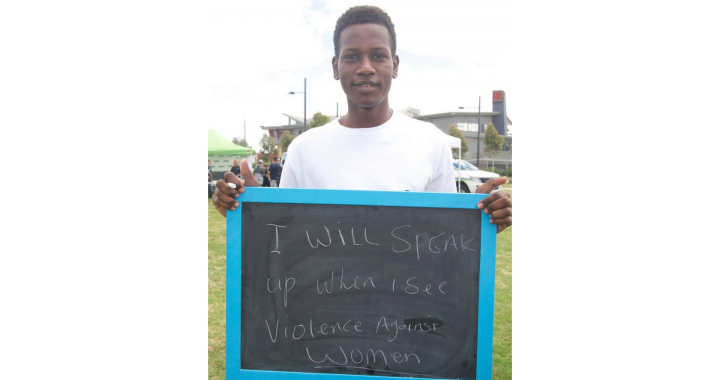 I WILL SPEAK
up when I see
Violence Against
Women